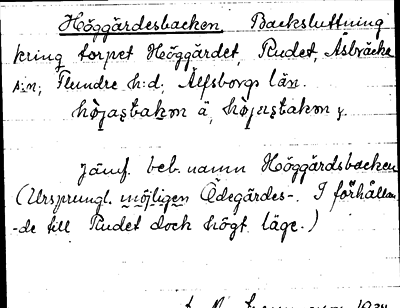 Höggärdesbacken, Backsluttning
kring torpet Höggärdet, Rudet, Åsbräcka
s:n; Flundre h:d; Älfsborgs län.
Jämf. beb. namn Höggärdsbacken
(Ursprungl. möjligen Ödegärdes-. I förhållan-
-de till Rudet dock högt läge.)